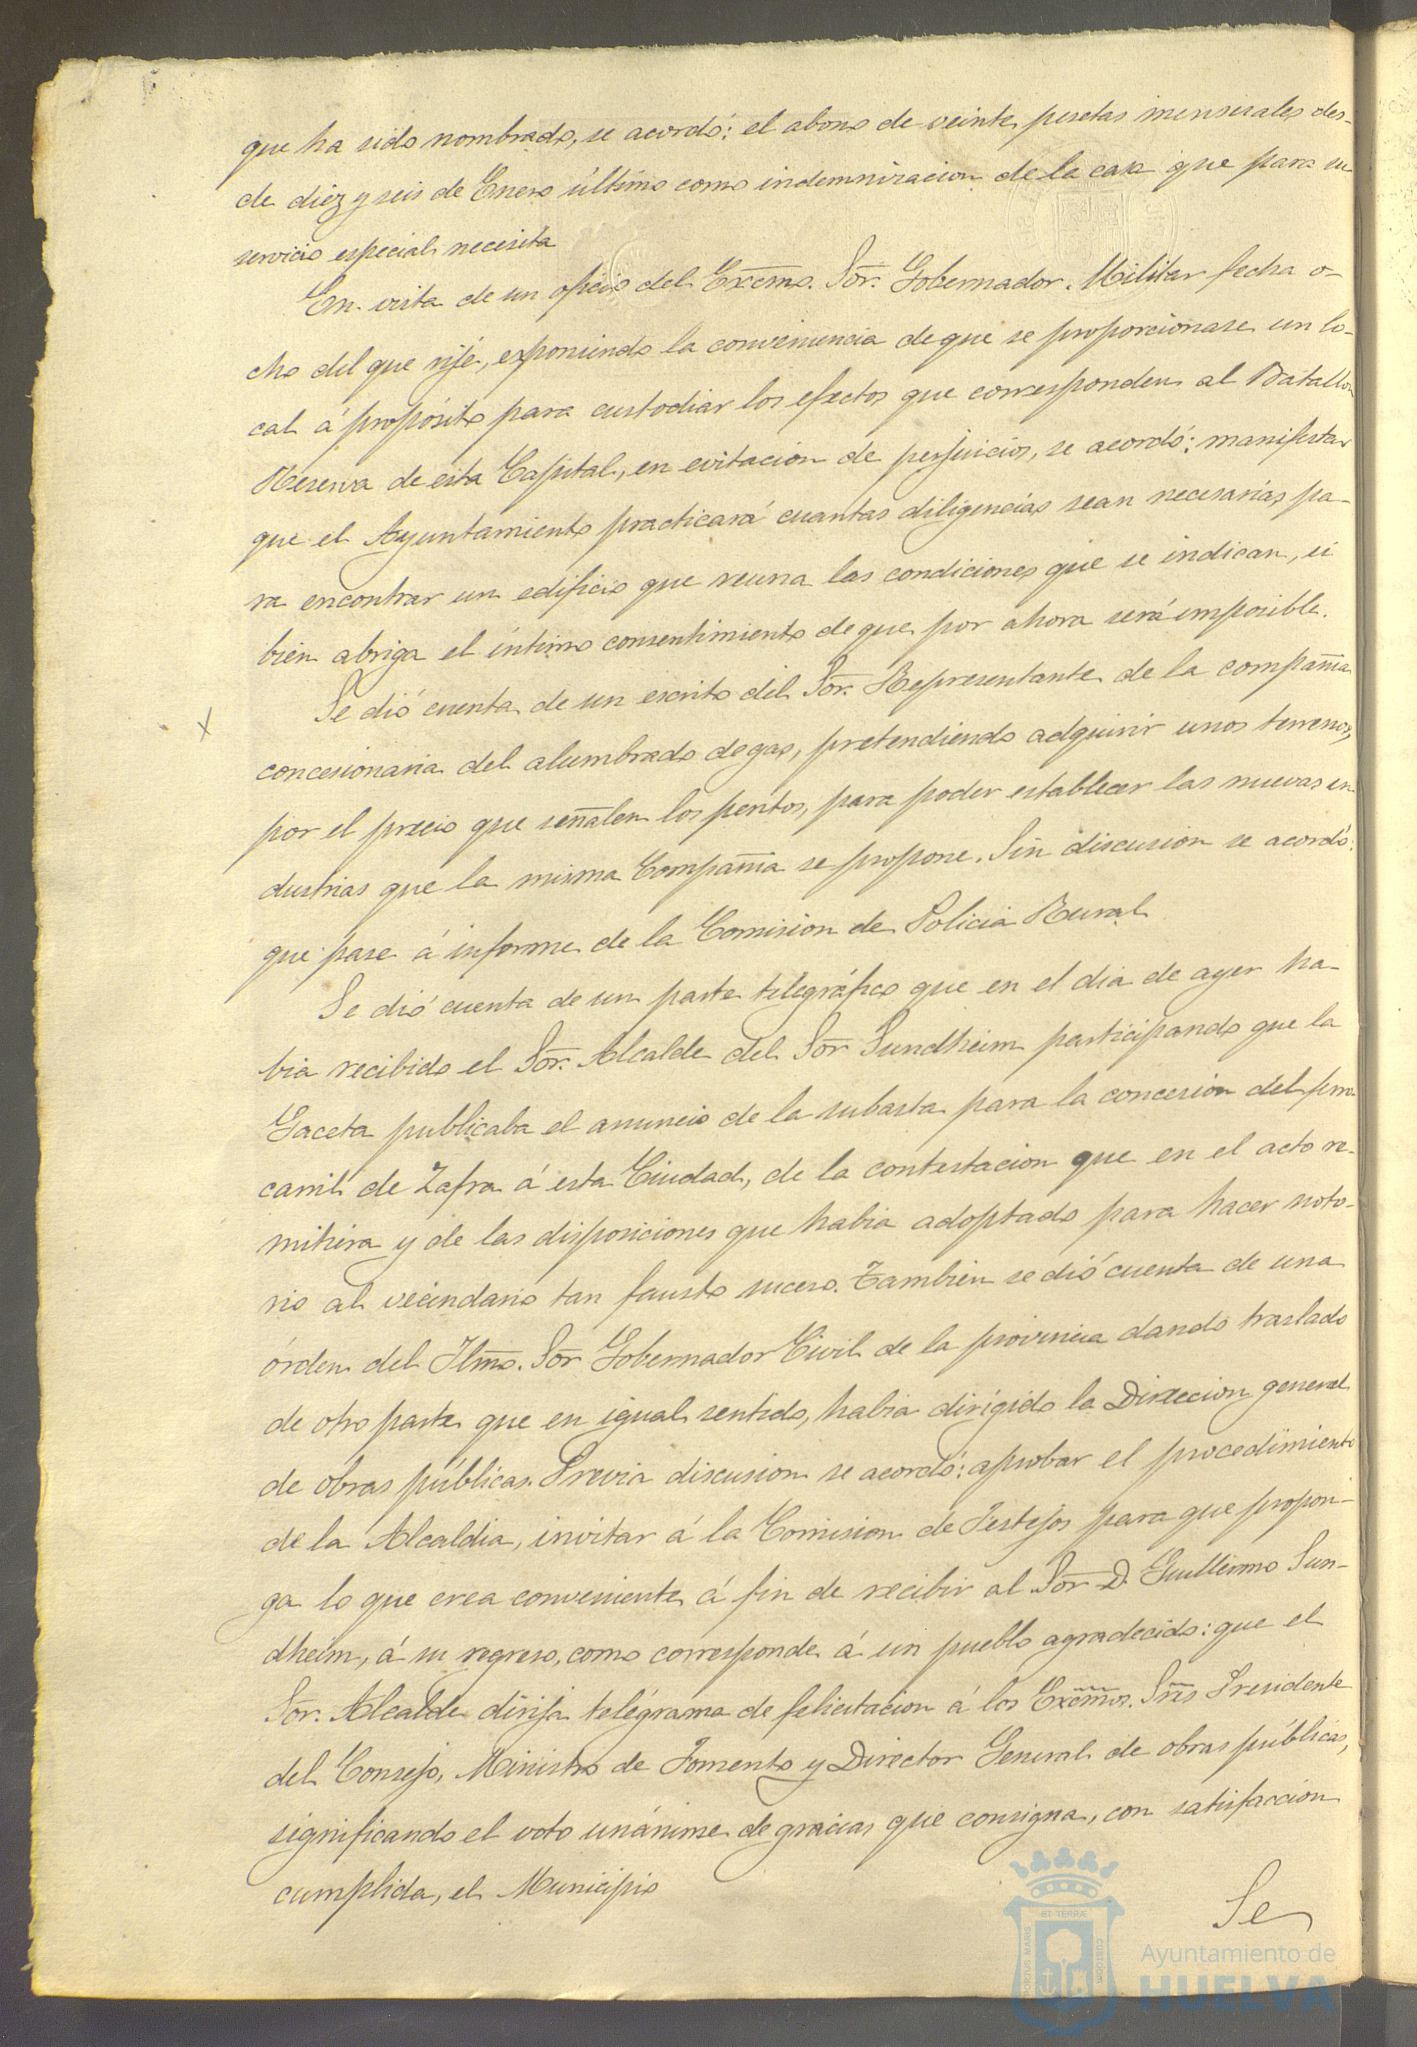 que ha sido nombrado, se acordó: el abono de veinte pesetas mensuales des-
de diez y seis de Enero último como indemnizacion de la casa que para su
servicio especial necesita
En vista de un oficio del Excmo. Sor. Gobernador Militar fecha o-
cho del que rije, esponiendo la conveniencia de que se proporcionase un lo-
cal á propósito para custodiar los efectos que corresponden al Batallon
Reserva de esta Capital, en evitacion de perjuicios, se acordó: manifestar
que el Ayuntamiento practicará cuantas diligencias sean necesarias pa-
ra encontrar un edificio que reuna las condiciones que se indican, si
bien abriga el íntimo consentimiento de que por ahora será imposible.
Se dió cuenta de un escrito del Sor. Representante de la compañia
X
concesionaria del alumbrado de gas, pretendiendo adquirir unos terrenos,
por el precio que señalen los peritos, para poder establecer las nuevas in
dustrias que la misma Compañia se propone. Sin discusion se acordó:
que pase á informe de la Comision de Policia Rural
Se dió cuenta de un parte telegráfico que en el dia de ayer ha-
bia recibido el Sor. Alcalde del Sor Sundheim participando que la
Gaceta publicaba el anuncio de la subasta para la concesion del ferro
carril de Zafra á esta Ciudad, de la contestacion que en el acto re-
mitiera y de las disposiciones que habia adoptado para hacer noto-
rio al vecindario tan fausto suceso. Tambien se dió cuenta de una
órden del Ilmo. Sor Gobernador Civil de la provincia dando traslado
de otro parte que en igual sentido, habia dirigido la Direccion general
de obras públicas. Previa discusion se acordó: aprobar el procedimiento
de la Alcaldia, invitar á la Comision de Festejos para que propon-
ga lo que crea conveniente á fin de recibir al Sor D. Guillermo Sun-
dheim, á su regreso, como corresponde á un pueblo agradecido: que el
Sor. Alcalde dirija telégrama de felicitacion á los Excmos. Sres Presidente
del Consejo, Ministro de Fomento y Director General de obras públicas,
significando el voto unánime de gracias que consigna, con satisfaccion
cumplida, el Municipio
Se
PORTUS MARIS ET TERRÆ CUSTODIA
Ayuntamiento de
HUELVA